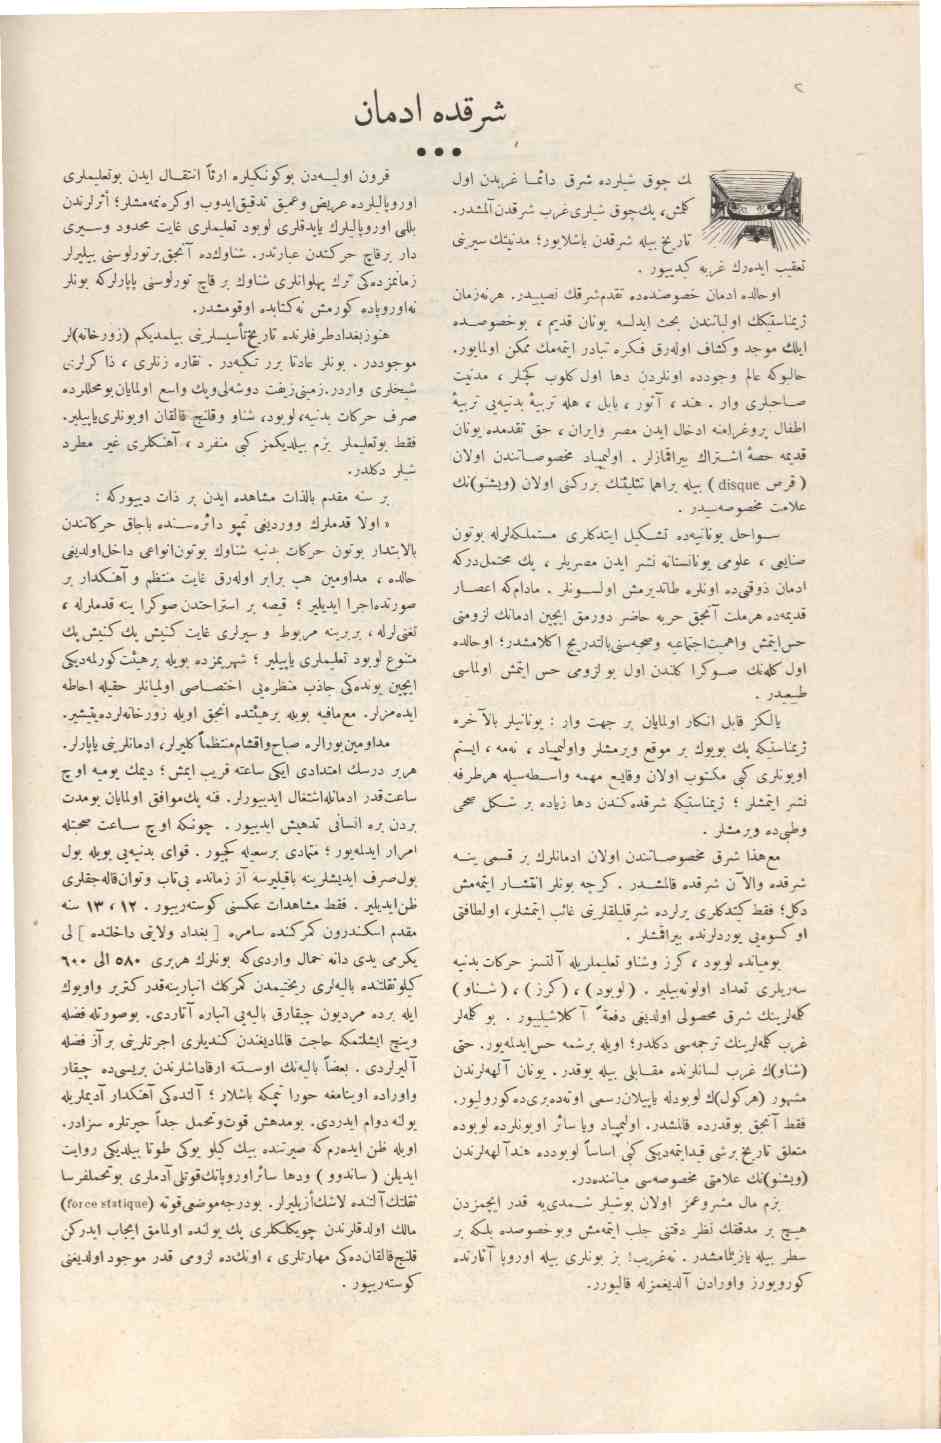 ٢
شرقده ادمان
پك چوق شیلرده شرق دائمـا غربدن اول
كلمش، پك‌چوق شیلری غرب شرقدن آلمشدر.
تاریخ بیله شرقدن باشلایور؛ مدنیتك سیرینی
تعقیب ایده‌رك غربه كیدییور .
اوحالده ادمان خصوصنده‌ده تقدم شرقك نصیبیدر. هرنه‌زمان
ژیمناستیكك اولیاتندن بحث ایدلسه یونان قدیم ، بوخصوصده
ایلك موجد وكشاف اوله‌رق فكره تبادر ایتمه‌مك ممكن اولمایور.
حالبوكه عالم وجودده اونلردن دها اول كلوب كچنلر ، مدنیت
صاحبلری وار . هند ، آثور ، بابل ، هله تربیۀ بدنیه‌یی تربیۀ
اطفال پروغرامنه ادخال ایدن مصر وایران ، حق تقدمده یونان
قدیمه حصۀ اشتراك بیراقمازلر . اولیمپیاد مخصوصاتندن اولان
( قرص disque ) بیله براهما تثلیثنك برركنی اولان (ویشنو)نك
علامت مخصوصه‌سیدر .
سواحل یونانیه‌ده تشكیل ایتدكلری مستملكه‌لرله بوتون
صنایعی ، علومی یونانستانه نشر ایدن مصریلر ، پك محتملدركه
ادمان ذوقنی‌ده اونلره طاتدیرمش اولسونلر . مادام‌كه اعصار
قدیمه‌ده هرملت آنجق حربه حاضر دورمق ایچین ادمانك لزومنی
حس‌ایتمش واهمیت‌اجتماعیه وصحیه‌سنی‌بالتدریج آكلامشدر؛ اوحالده
اول كله‌نك صوكرا كلندن اول بو لزومی حس ایتمش اولماسی
طبیعیدر .
یالكز قابل انكار اولمایان بر جهت وار : یونانیلر بالآخره
ژیمناستیكه پك بویوك بر موقع ویرمشلر واولیمپیاد ، نه‌مه ، ایستم
اویونلری كبی مكتوب اولان وقایع مهمه واسطه‌سیله هرطرفه
نشر ایتمشلر ؛ ژیمناستیكه شرقده‌كندن دها زیاده بر شكل صحی
وطبی‌ده ویرمشلر .
مع‌هذا شرق مخصوصاتندن اولان ادمانلرك بر قسمی ینه
شرقده والآن شرقده قالمشدر . كرچه بونلر انتشار ایتمه‌مش
دكل؛ فقط كیتدكلری یرلرده شرقلیلقلرینی غائب ایتمشلر، اولطافتی
او كسوه‌یی یوردلرنده بیراقمشلر .
بومیانده لوبود ، كرز وشناو تعلیملریله آلتسز حركات بدنیه
سه‌ریلری تعداد اولونه‌بیلیر . (لوبود) ، (كرز) ، (شناو)
كله‌لرینك شرق محصولی اولدیغی دفعةً آكلاشیلییور . بو كله‌لر
غرب كله‌لرینك ترجمه‌سی دكلدر؛ اویله برشمه حس‌ایدلمه‌یور. حتی
(شناو)ك غرب لسانلرنده مقابلی بیله یوقدر. یونان آلهه‌لرندن
مشهور (هركول)ك لوبودله یاپیلان‌رسمی اوته‌ده‌بری‌ده‌كورولیور.
فقط آنجق بوقدرده قالمشدر. اولیمپیاد ویا سائر اویونلرده لوبوده
متعلق تاریخ برشی قیدایتمه‌دیكی كبی اساساً لوبودده هندآلهه‌لرندن
(ویشنو)نك علامتی مخصوصه‌سی میاننده‌در.
بزم مال مشروعمز اولان بوشیلر شمدی‌یه قدر ایچمزدن
هیچ بر مدققك نظر دقتنی جلب ایتمه‌مش وبوخصوصده بلكه بر
سطر بیله یازیلمامشدر. نه‌غریب! بز بونلری بیله اوروپا آثارنده
كورویورز واورادن آلدیغمزله قالیورز.
قرون اولیه‌دن بوكونكیلره ارثاً انتقال ایدن بوتعلیملری
اوروپالیلرده عریض وعمیق تدقیق‌ایدوب اوكره‌نمه‌مشلر؛ أثرلرندن
بللی اوروپالیلرك یاپدقلری لوبود تعلیملری غایت محدود وسیری
دار برقاچ حركتدن عبارتدر. شناوك‌ده آنجق‌برتورلوسنی بیلیرلر
زمانمزده‌كی ترك پهلوانلری شناوك بر قاچ تورلوسنی یاپارلركه بونلر
نه‌اوروپاده كورمش نه‌كتابده اوقومشدر.
هنوزبغدادطرفلرنده تاریخ‌تأسیسلرینی بیلمدیكم (زورخانه)لر
موجوددر . بونلر عادتا برر تكیه‌در . نقاره زنلری ، ذاكرلری
شیخلری واردر.زمینی‌زیفت دوشه‌لی‌وپك واسع اولمایان‌بومحللرده
صرف حركات بدنیه، لوبود، شناو وقلنج قالقان اویونلری‌یاپیلیر.
فقط بوتعلیملر بزم بیلدیكمز كبی منفرد ، آهنكلری غیر مطرد
شیلر دكلدر.
بر سنه مقدم بالذات مشاهده ایدن بر ذات دییوركه :
« اولا قدملرك ووردیغی تمپو دائره‌سنده باجاق حركاتندن
بالابتدار بوتون حركات بدنیه شناوك بوتون‌انواعی داخل‌اولدیغی
حالده ، مداومین هپ برابر اوله‌رق غایت منتظم و آهنكدار بر
صورتده‌اجرا ایدیلیر ؛ قیصه بر استراحتدن صوكرا ینه قدملرله ،
تغنی‌لرله ، بربرینه مربوط و سیرلری غایت كنیش پك كنیش‌پك
متنوع لوبود تعلیملری یاپیلیر ؛ شهریمزده بویله برهیئت‌كورلمه‌دیكی
ایچین بونده‌كی جاذب منظره‌یی اختصاصی اولمیانلر حقیله احاطه
ایده‌مزلر. مع‌مافیه بویله برهیئتده انجق اویله زورخانه‌لرده‌یتیشیر.
مداومین‌بورالره صباح‌واقشام‌منتظماً كلیرلر، ادمانلرینی یاپارلر.
هربر درسك امتدادی ایكی ساعته قریب ایمش ؛ دیمك یومیه اوچ
ساعت‌قدر ادمانله‌اشتغال ایدییورلر. فنه پك‌موافق اولمایان بومدت
بردن بره انسانی تدهیش ایدییور . چونكه اوچ ساعت صحبتله
امرار ایدلمه‌یور ؛ متمادی برسعیله كچیور. قوای بدنیه‌یی بویله بول
بول‌صرف ایدیشلرینه باقیلیرسه آز زمانده بی‌تاب وتوان‌قاله‌جقلری
ظن‌ایدیلیر . فقط مشاهدات عكسنی كوسته‌رییور . ١٢ ، ١٣ سنه
مقدم اسكندرون كمركنده سامره [ بغداد ولایتی داخلنده ] لی
یكرمی یدی دانه حمال واردی‌كه بونلرك هربری ٥٨٠ الی ٦٠٠
كیلوثقلتنده بالیه‌لری ریختیمدن كمركك انبارینه‌قدر كتیریر واوبوك
ایله برده مردیون چیقارق بالیه‌یی انباره آتاردی. بوصورتله فضله
وینچ ایشلتمكه حاجت قالمادیغندن كندیلری اجرتلرینی برآز فضله
آلیرلردی . بعضاً بالیه‌نك اوستنه ارقاداشلرندن بریسی‌ده چیقار
واوراده اوینامغه حورا تپمكه باشلار ؛ آلتده‌كی آهنكدار آدیملریله
یولنه دوام ایدردی. بومدهش قوت‌وتحمل جداً حیرتلره سزادر.
اویله ظن ایده‌رم‌كه صیرتنده بیك كیلو یوكی طوتا بیلدیكی روایت
ایدیلن ( ساندوو ) ودها سائراوروپانك‌قوتلی‌آدملری بوتحملفرسا
ثقلتك‌آلتنده لاشك‌أزیلیرلر. بودرجه‌موضعی‌قوته (force statique)
مالك اولدقلرندن چویكلكلری پك یولنده اولمامق ایجاب ایدركن
قلنج‌قالقان‌ده‌كی مهارتلری ، اونك‌ده لزومی قدر موجود اولدیغنی
كوسته‌رییور .